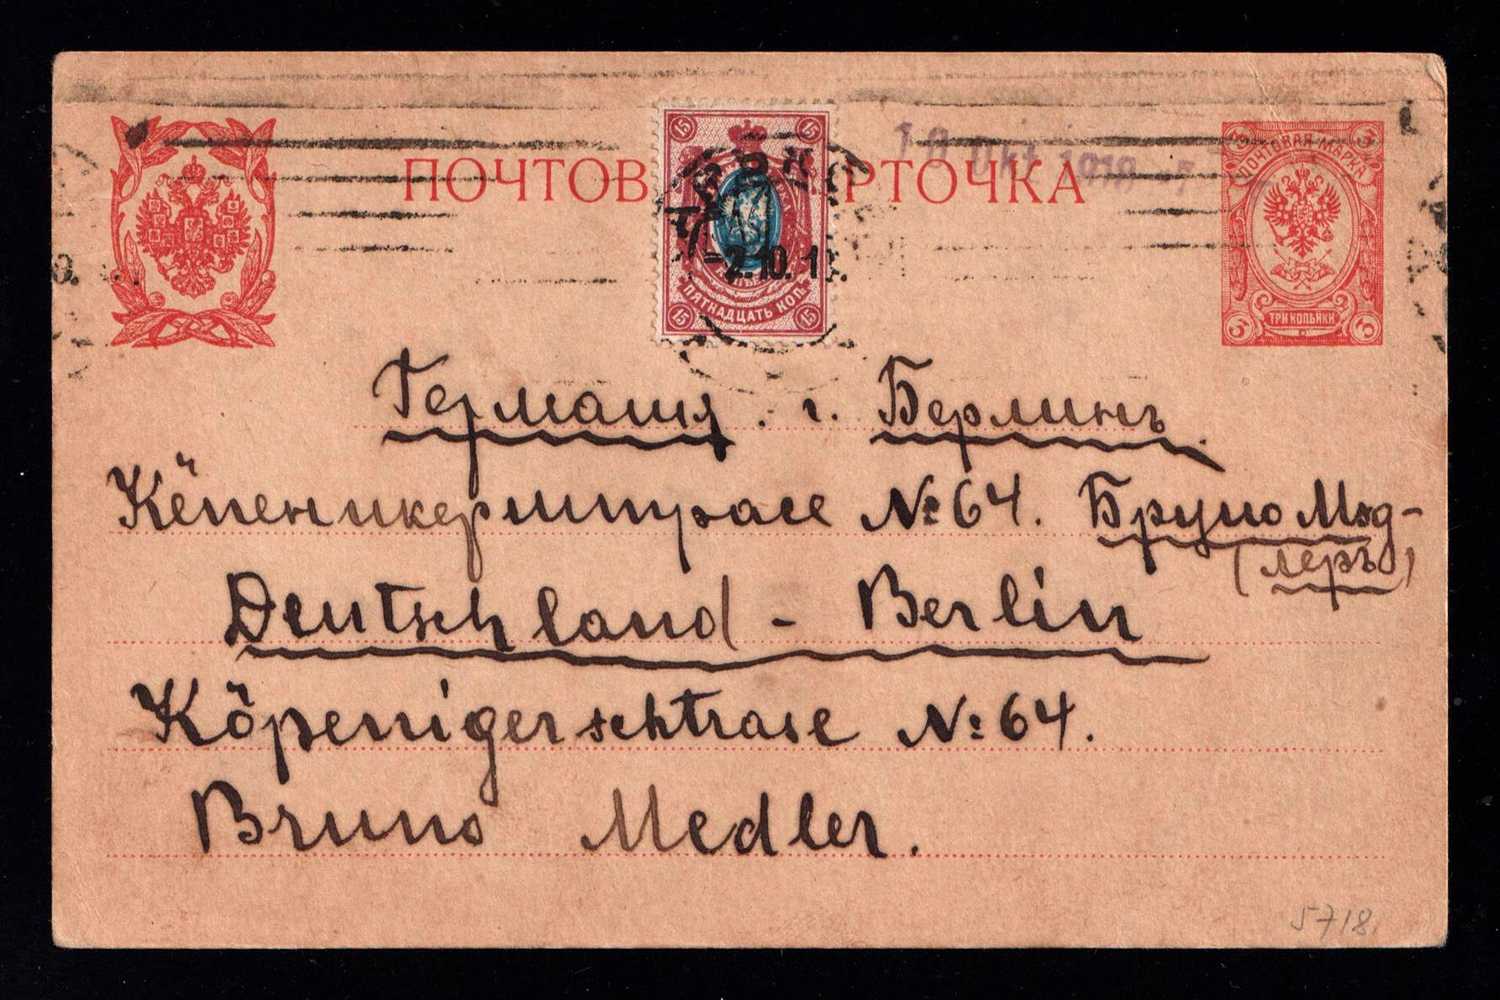 ПОЧТОВ РТОЧКА
15 15
ПЯТНАДЦАТЬ КОП.
15 15
-2.10.1
10 Okt 1918
ПОЧТОВАЯ МАРКА
3 3
ТРИ КОПѢЙКИ
3 3
Германия. г. Берлинъ.
Кёпеникерштрасе № 64. Бруно Мэд-
(леръ)
Deutschland - Berlin
Köpenigerschtrase №: 64.
Bruno Medler.
5718